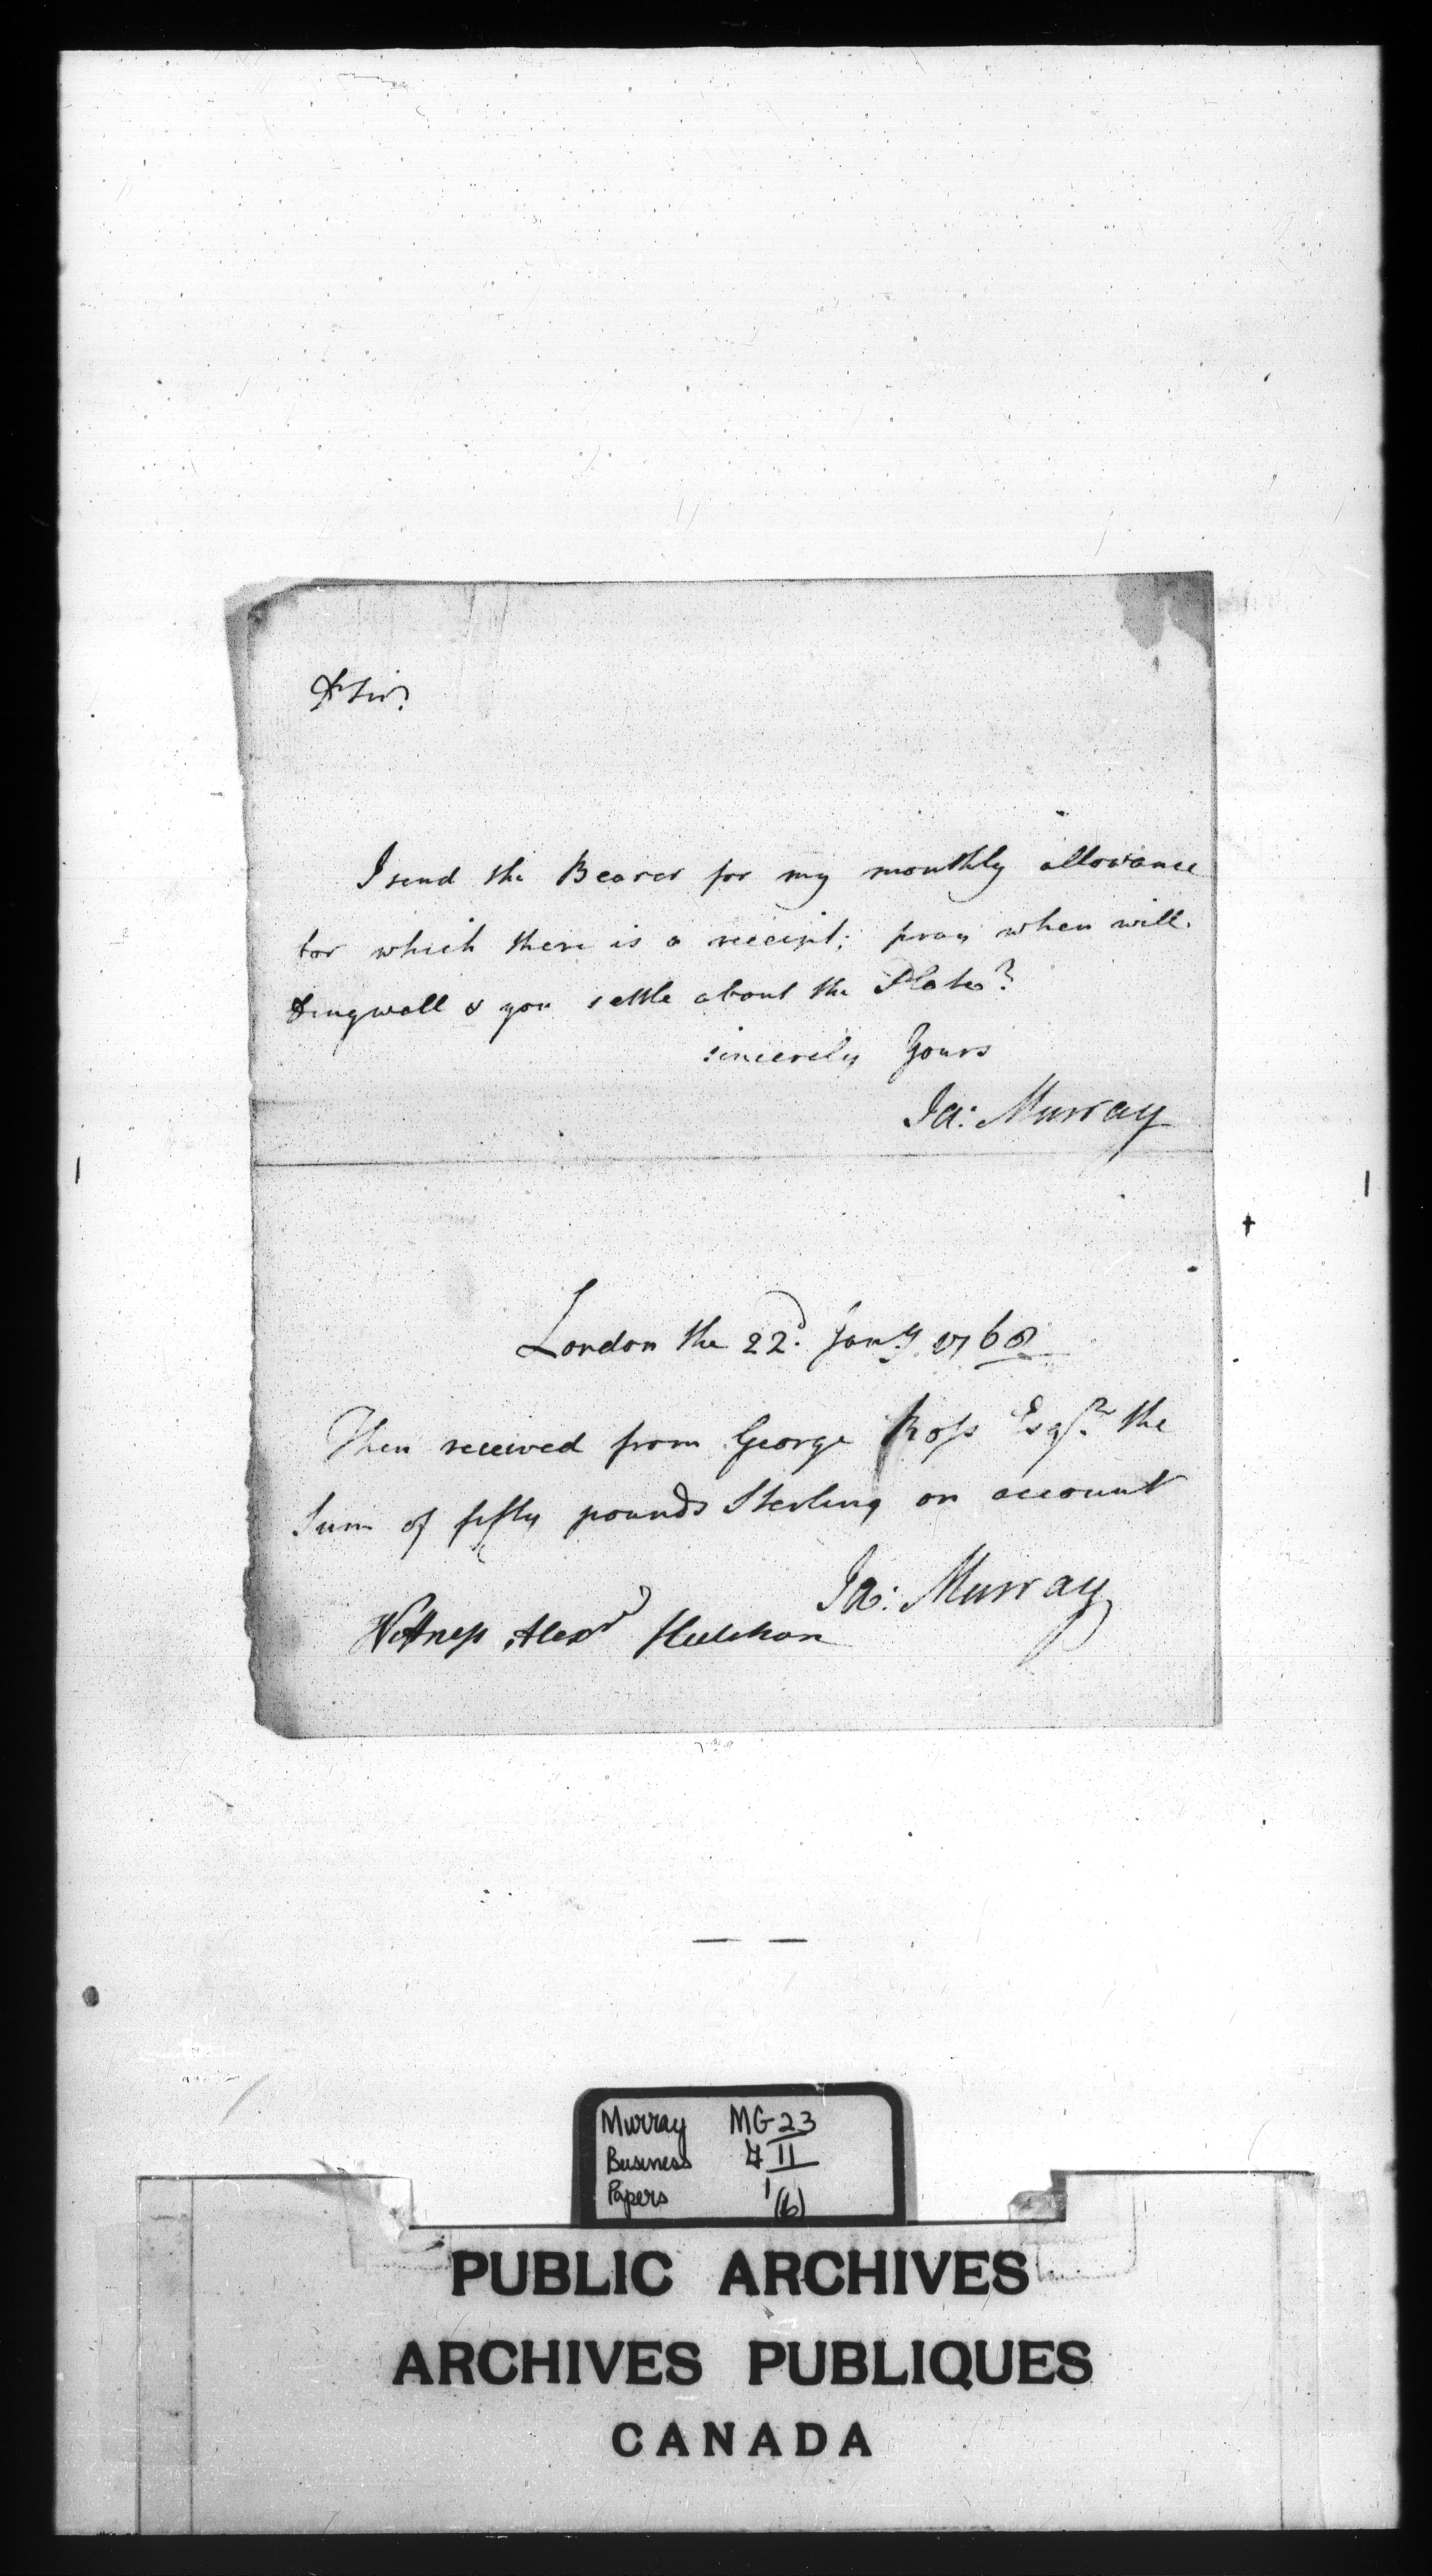 Dr Sir
I send the Bearer for my monthly allowance
for which there is a receipt; pray when will
Dingwall & you settle about the Plate?
sincerely Yours
Ja: Murray
London the 22d. Jany 1768
Then received from George Ross Esqr. the
Sum of fifty pounds Sterling on account
Ja: Murray
Witness Alexr
Murray MG 23
Business G II
Papers 1 (b)
PUBLIC ARCHIVES
ARCHIVES PUBLIQUES
CANADA